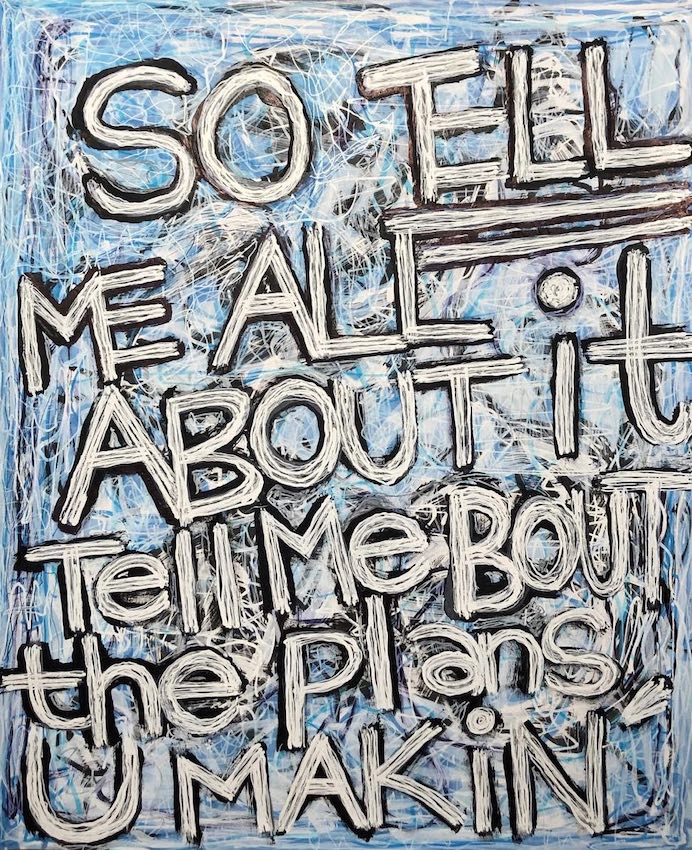 SO TELL
ME ALL it
ABOUT
Tell Me BOUT
the plans
U MAKiN'